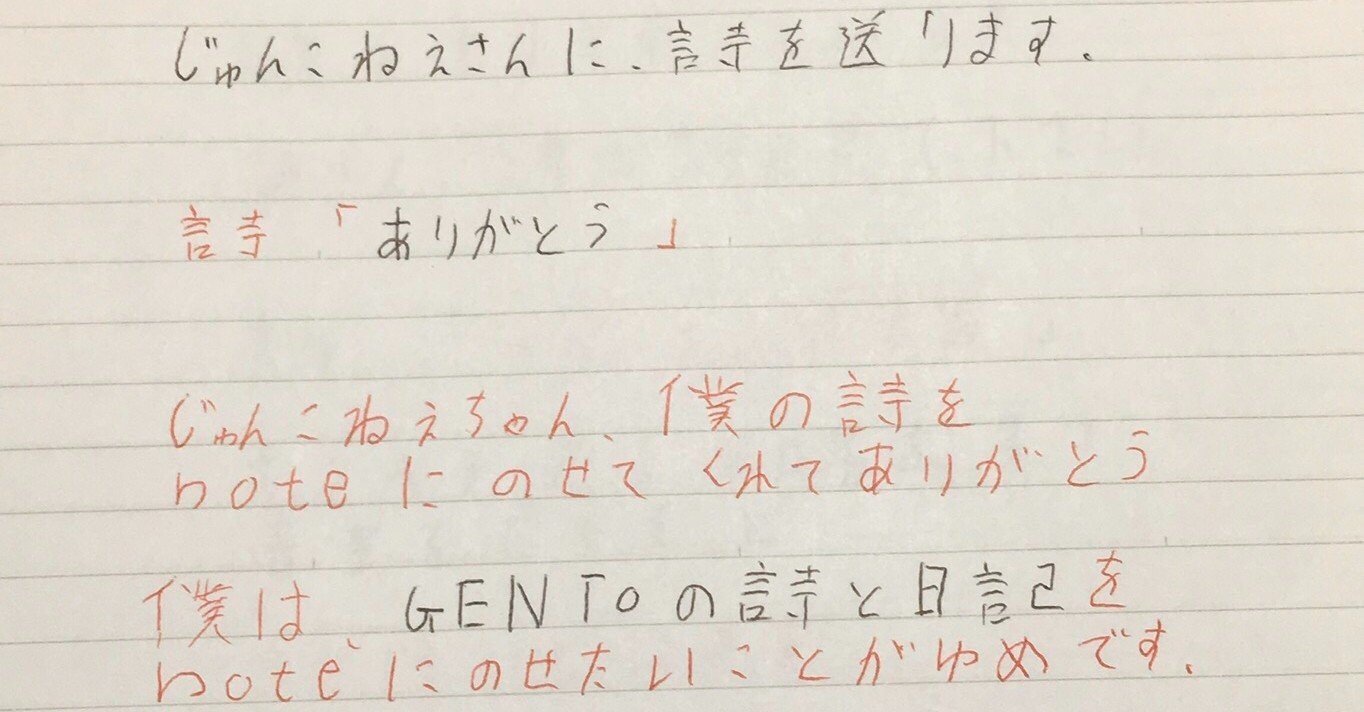 じゅんこねえさんに、詩を送ります。
詩「ありがとう」
じゅんこねえちゃん、僕の詩を
noteにのせてくれてありがとう
僕は、GENTOの詩と日記を
noteにのせたいことがゆめです。